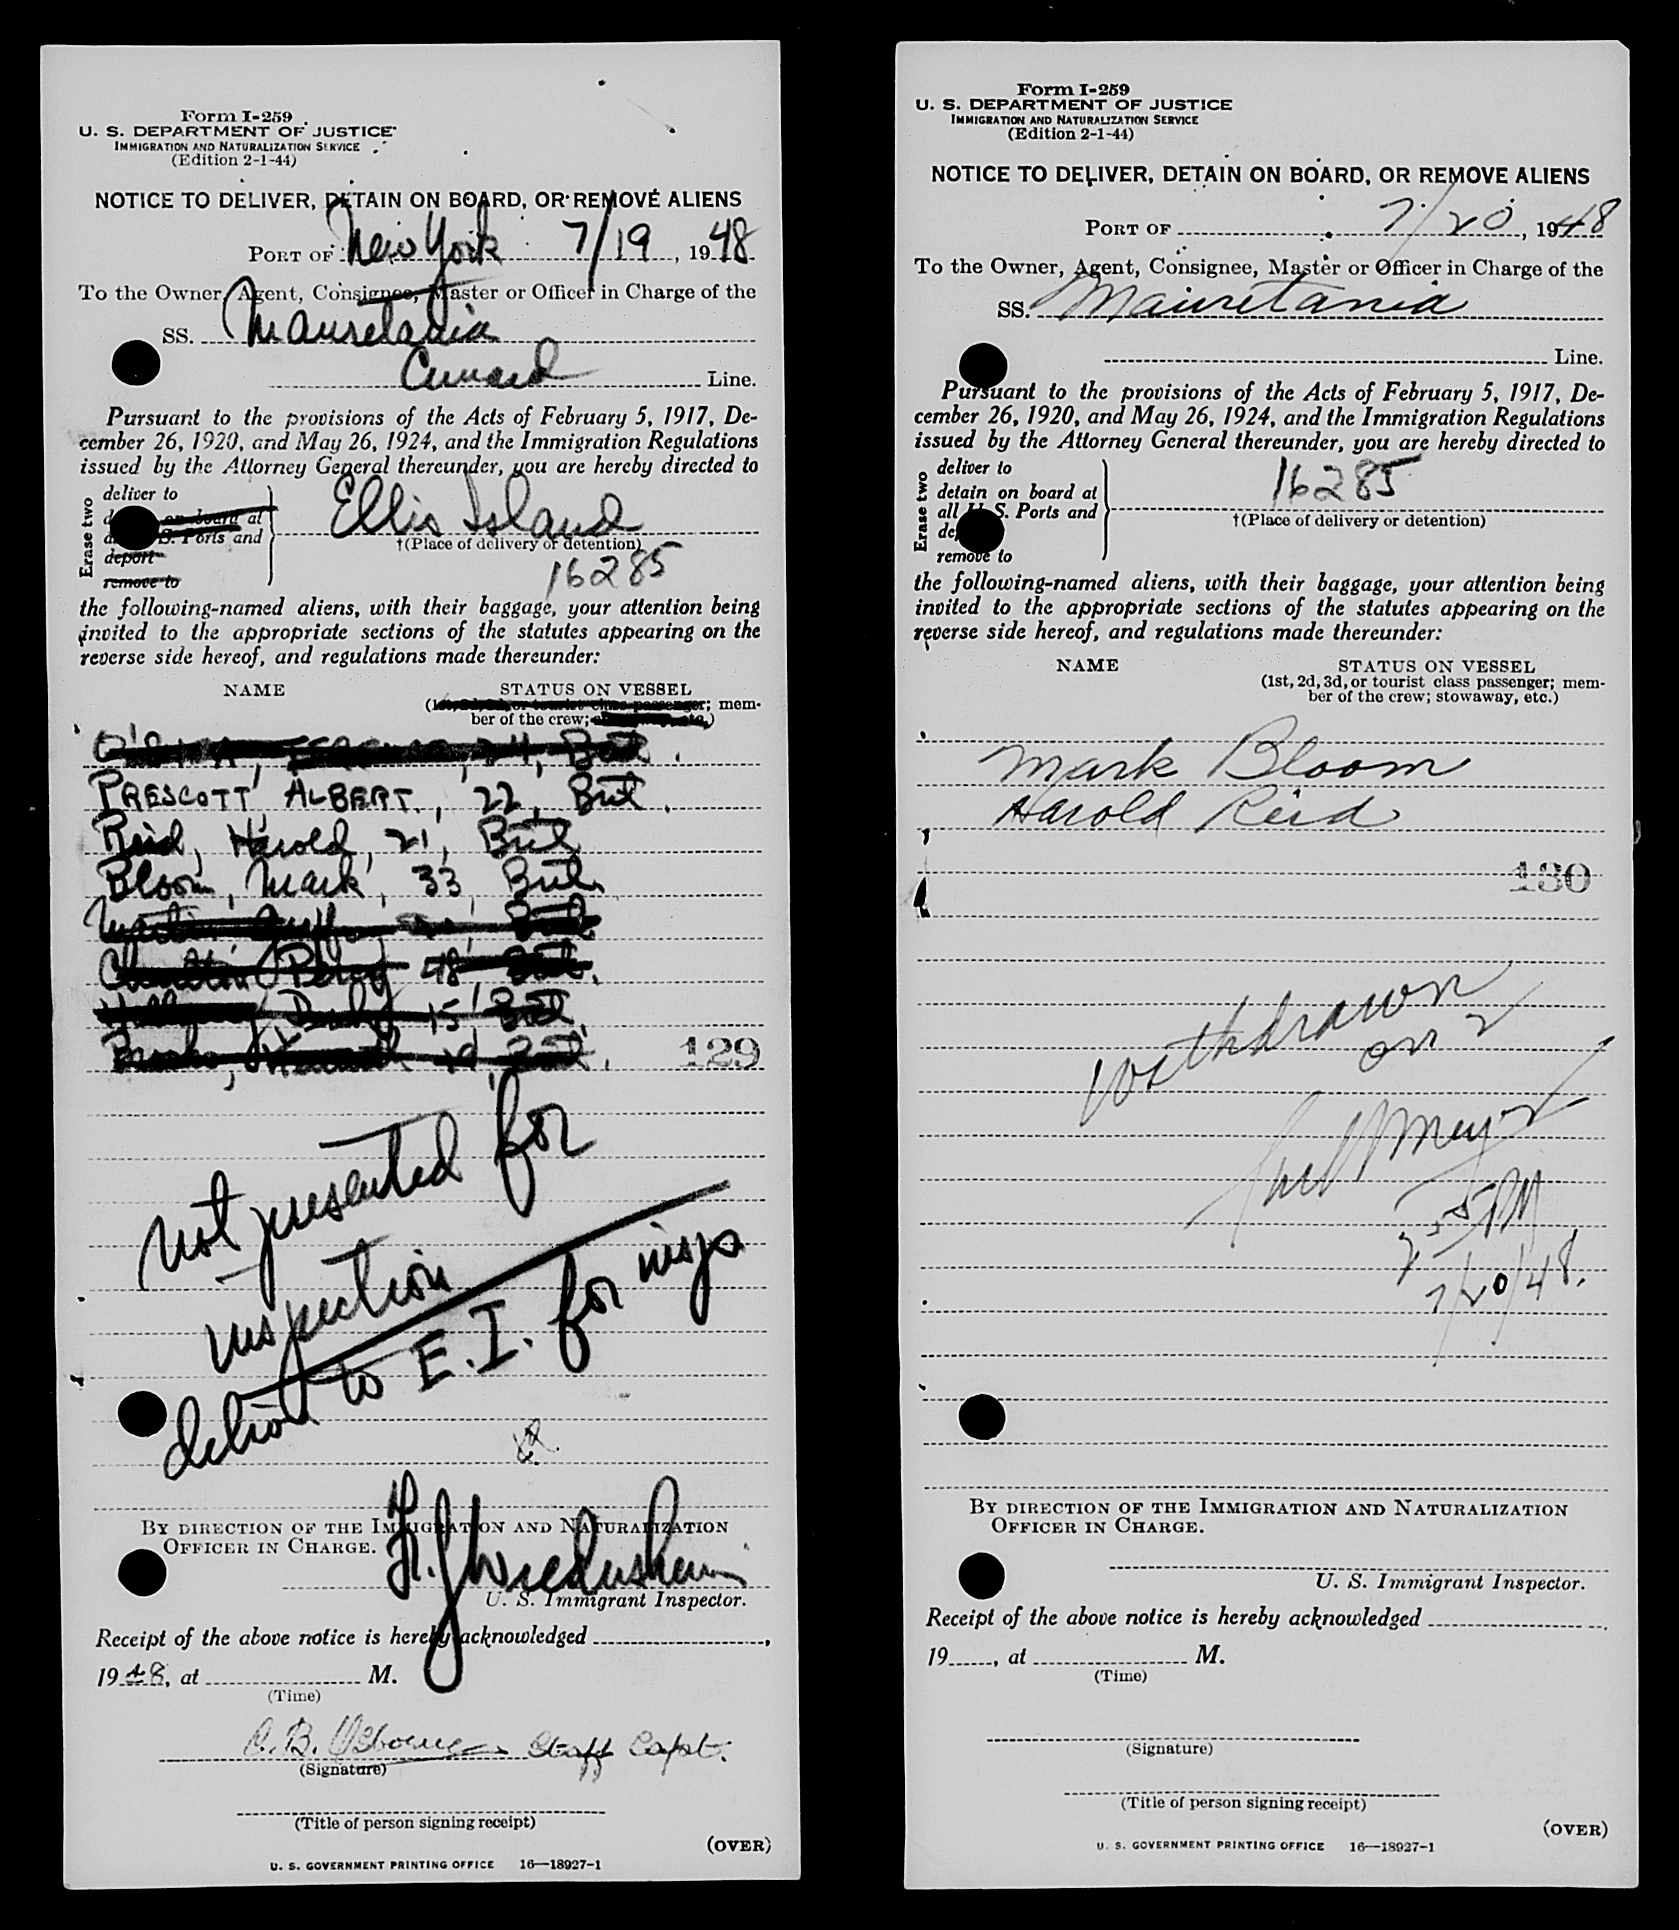 Form I-259
U. S. DEPARTMENT OF JUSTICE
IMMIGRATION AND NATURALIZATION SERVICE
(Edition 2-1-44)
NOTICE TO DELIVER, DETAIN ON BOARD, OR REMOVE ALIENS
PORT OF New York 7/19, 1948
To the Owner, Agent, Consignee, Master or Officer in Charge of the
SS. Mauretania
Cunard Line.
Pursuant to the provisions of the Acts of February 5, 1917, De-
cember 26, 1920, and May 26, 1924, and the Immigration Regulations
issued by the Attorney General thereunder, you are hereby directed to
Erase two
deliver to
on board at
S. Ports and
deport
remove to
Ellis Island
†(Place of delivery or detention)
16285
the following-named aliens, with their baggage, your attention being
invited to the appropriate sections of the statutes appearing on the
reverse side hereof, and regulations made thereunder:
NAME STATUS ON VESSEL
(1st, 2d, 3d, or tourist class passenger; mem-
ber of the crew; stowaway, etc.)
24, Brit.
PRESCOTT, ALBERT., 22, Brit.
Reid, Harold, 21, Brit
Bloom, Mark, 33, Brit.
Martin, Brit.
Percy 48 Brit.
15 Brit.
Kenneth 19, Brit. 129
not presented for
inspection
deliver to E.I. for insp
BY DIRECTION OF THE IMMIGRATION AND NATURALIZATION
OFFICER IN CHARGE.
U. S. Immigrant Inspector.
Receipt of the above notice is hereby acknowledged,
1948, at M.
(Time)
C. B. Osborne Staff Capt.
(Signature)
(Title of person signing receipt)
(OVER)
U. S. GOVERNMENT PRINTING OFFICE 16—18927-1
Form I-259
U. S. DEPARTMENT OF JUSTICE
IMMIGRATION AND NATURALIZATION SERVICE
(Edition 2-1-44)
NOTICE TO DELIVER, DETAIN ON BOARD, OR REMOVE ALIENS
PORT OF 7/20, 1948
To the Owner, Agent, Consignee, Master or Officer in Charge of the
SS. Mauretania
Line.
Pursuant to the provisions of the Acts of February 5, 1917, De-
cember 26, 1920, and May 26, 1924, and the Immigration Regulations
issued by the Attorney General thereunder, you are hereby directed to
Erase two
deliver to
detain on board at
all U. S. Ports and
remove to
16285
†(Place of delivery or detention)
the following-named aliens, with their baggage, your attention being
invited to the appropriate sections of the statutes appearing on the
reverse side hereof, and regulations made thereunder:
NAME STATUS ON VESSEL
(1st, 2d, 3d, or tourist class passenger; mem-
ber of the crew; stowaway, etc.)
Mark Bloom
Harold Reid
130
Withdrawn
on 2
7/20/48.
BY DIRECTION OF THE IMMIGRATION AND NATURALIZATION
OFFICER IN CHARGE.
U. S. Immigrant Inspector.
Receipt of the above notice is hereby acknowledged
19, at M.
(Time)
(Signature)
(Title of person signing receipt)
(OVER)
U. S. GOVERNMENT PRINTING OFFICE 16—18927-1